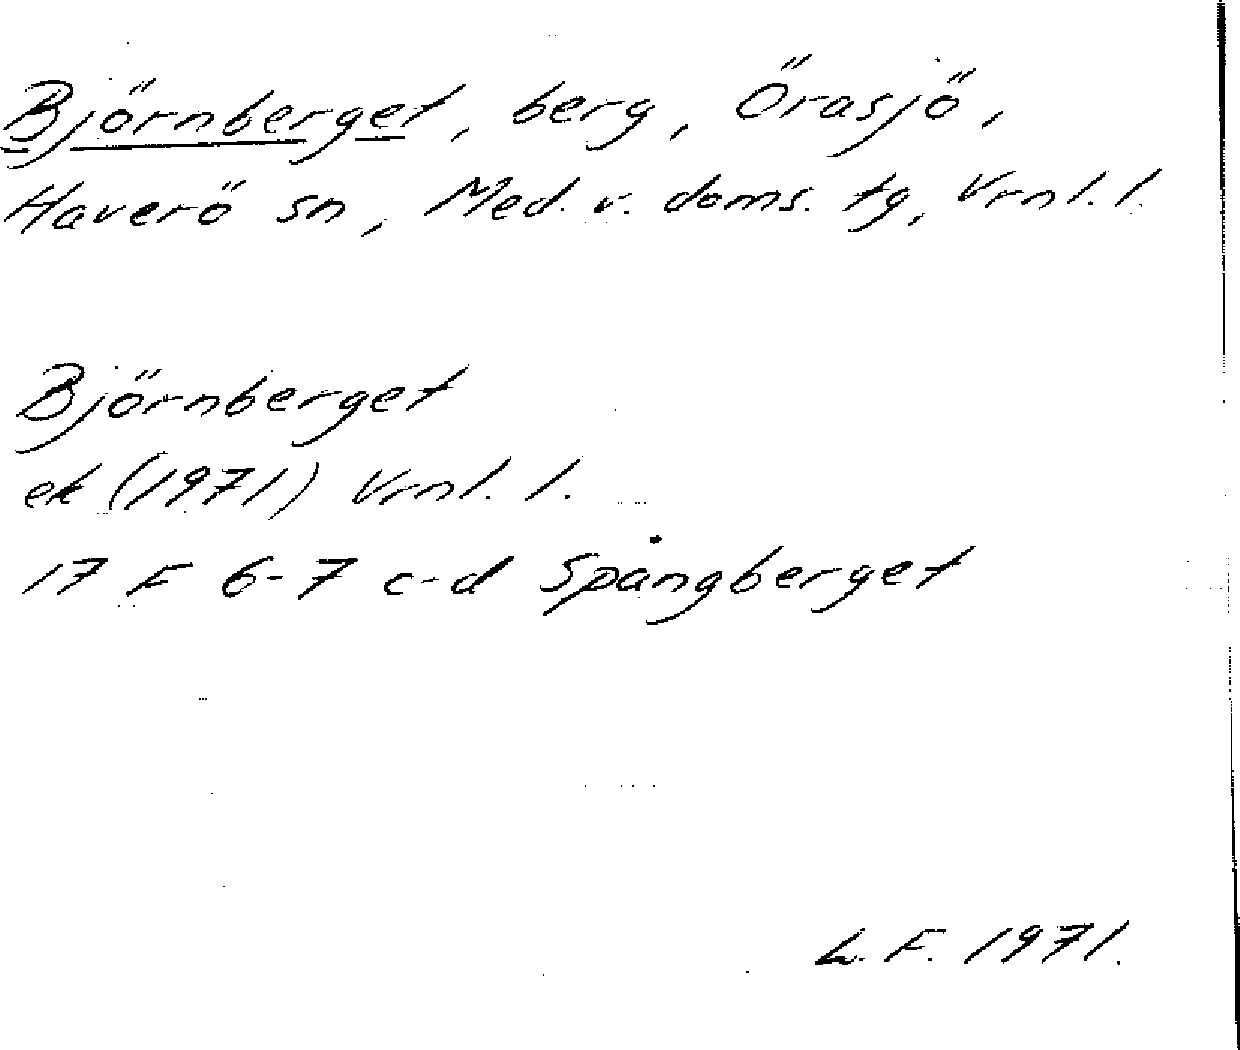 Björnberget, berg, Örasjö,
Haverö sn, Med. v. doms. tg, Vrnl. l.
Björnberget
ek (1971) Vrnl. l.
17 F 6-7 c-d Spångberget
L. F. 1971.